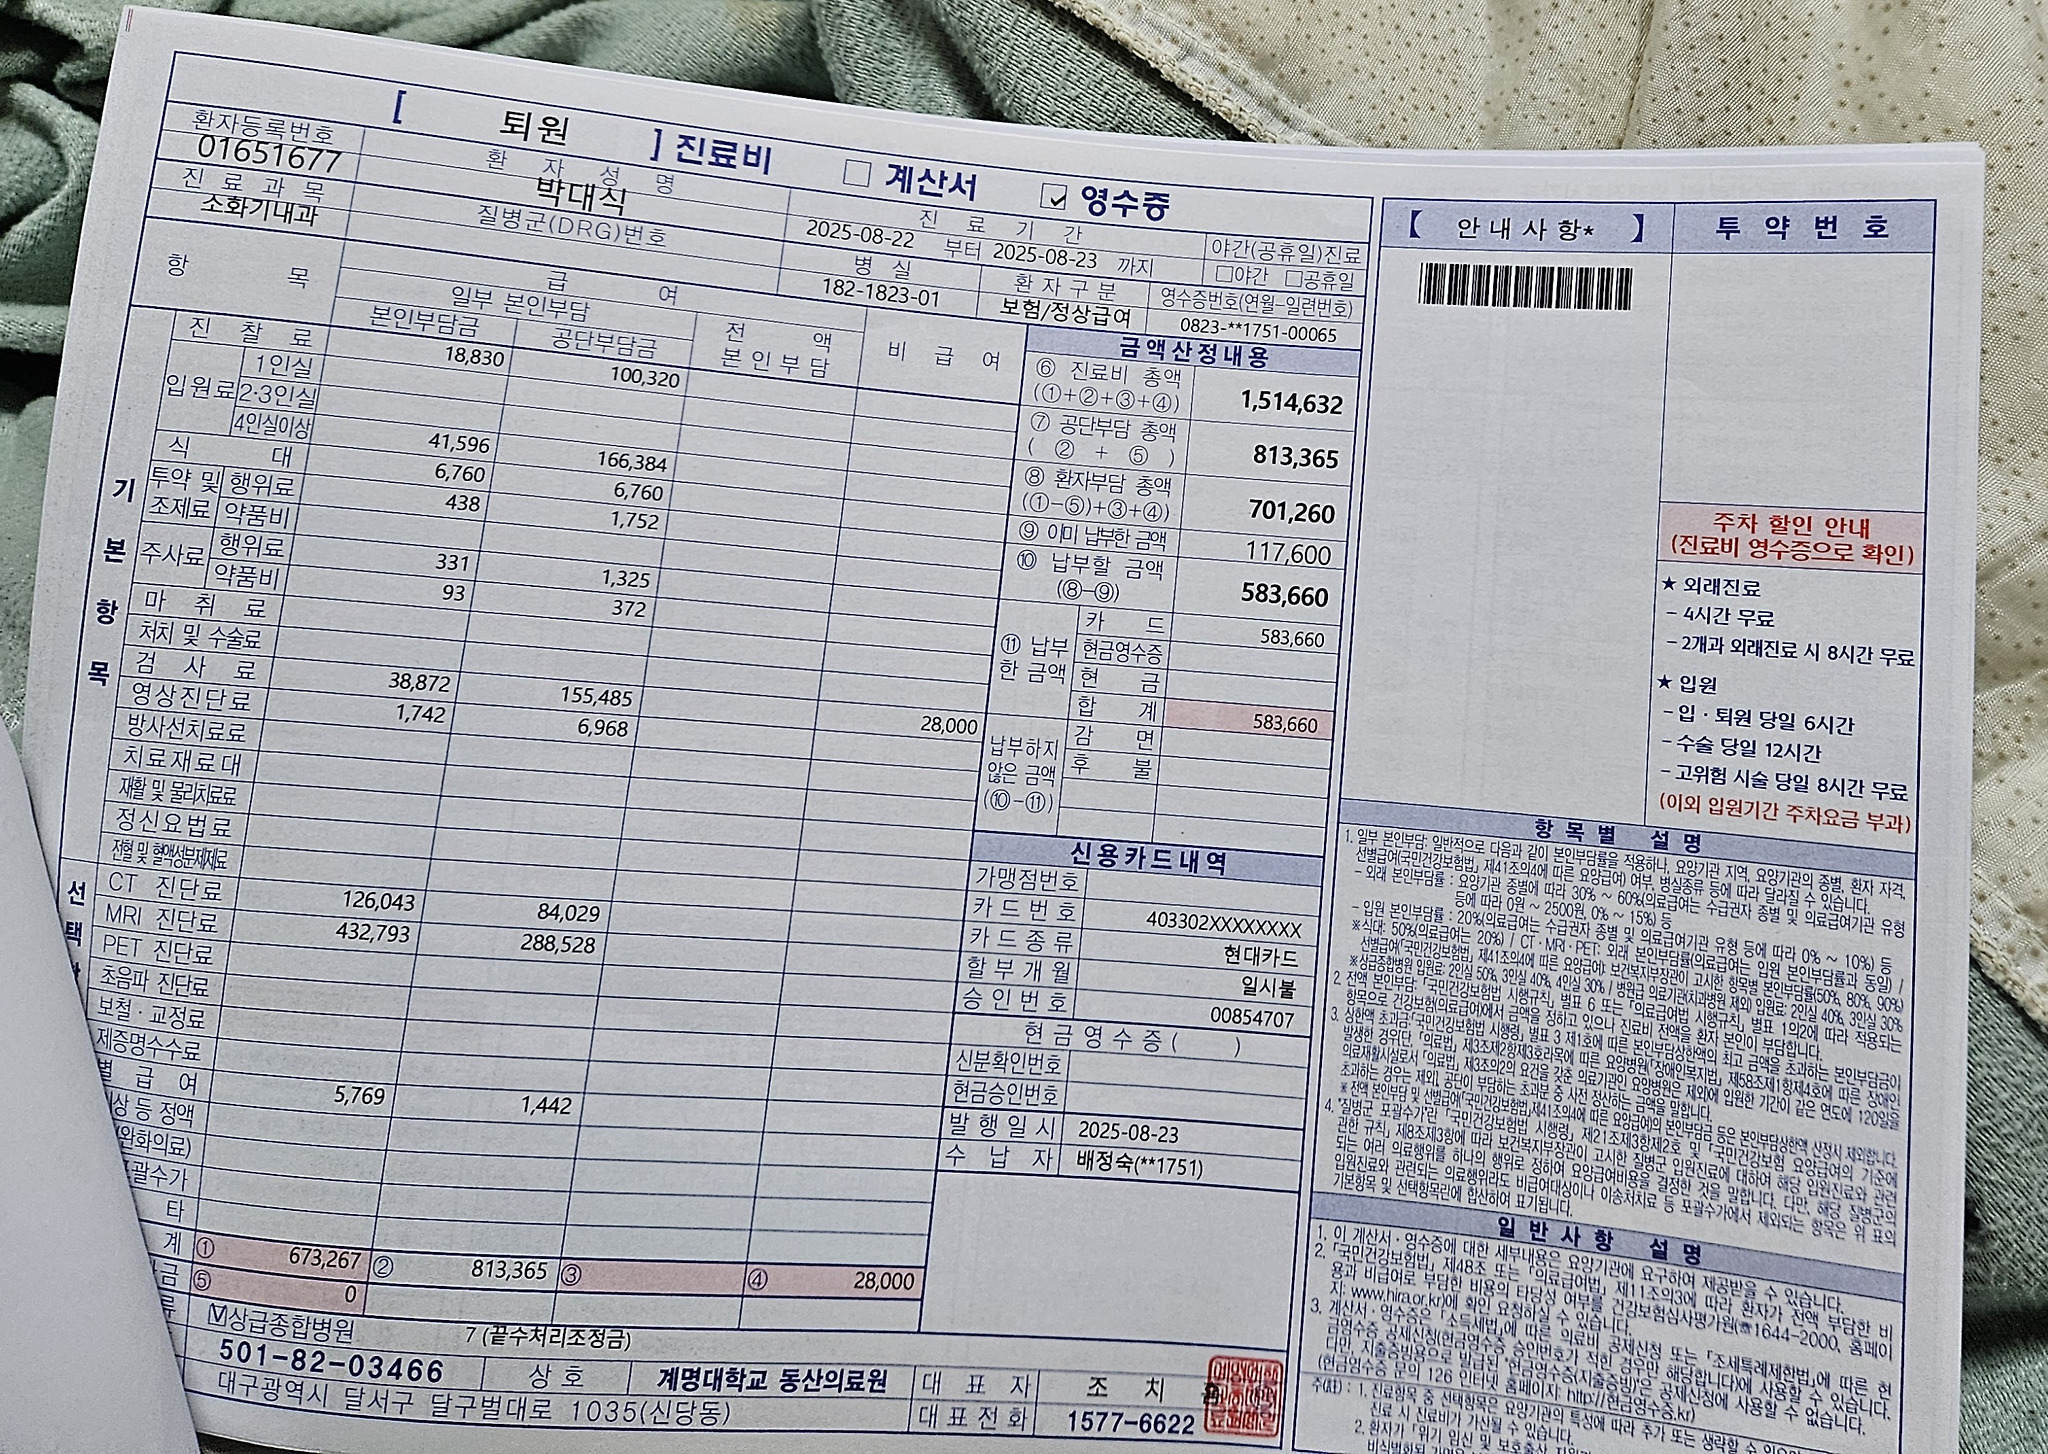 [ 퇴원 ] 진료비 □ 계산서 ☑ 영수증
환자등록번호 환 자 성 명 진 료 기 간 야간(공휴일)진료
01651677 박대식 2025-08-22 부터 2025-08-23 까지 □야간 □공휴일
진 료 과 목 질병군(DRG)번호 병 실 환 자 구 분 영수증번호(연월-일련번호)
소화기내과 182-1823-01 보험/정상급여 0823-**1751-00065
항 목 급 여 비 급 여
일부 본인부담 전 액 본 인 부 담
본인부담금 공단부담금
기 본 항 목
진 찰 료 18,830 100,320
입원료 1인실
2·3인실
4인실이상 41,596 166,384
식 대 6,760 6,760
투약 및 조제료 행위료 438 1,752
약품비
주사료 행위료 331 1,325
약품비 93 372
마 취 료
처치 및 수술료
검 사 료 38,872 155,485
영상진단료 1,742 6,968 28,000
방사선치료료
치료재료대
재활 및 물리치료료
정신요법료
전혈 및 혈액성분제제료
선 택
CT 진단료 126,043 84,029
MRI 진단료 432,793 288,528
PET 진단료
초음파 진단료
보철·교정료
제증명수수료
별 급 여 5,769 1,442
상 등 정액
(완화의료)
포괄수가
타
계 ① 673,267 ② 813,365 ③ ④ 28,000
⑤ 0
☑상급종합병원 7 (끝수처리조정금)
501-82-03466 상 호 계명대학교 동산의료원 대 표 자 조 치
대구광역시 달서구 달구벌대로 1035(신당동) 대표전화 1577-6622
금액산정내용
⑥ 진료비 총액
(①+②+③+④) 1,514,632
⑦ 공단부담 총액
( ② + ⑤ ) 813,365
⑧ 환자부담 총액
(①-⑤)+③+④) 701,260
⑨ 이미 납부한 금액 117,600
⑩ 납부할 금액
(⑧-⑨) 583,660
⑪ 납부한 금액
카 드 583,660
현금영수증
현 금
합 계 583,660
납부하지 않은 금액 (⑩-⑪)
감 면
후 불
신용카드내역
가맹점번호
카드번호 403302XXXXXXXX
카드종류 현대카드
할부개월 일시불
승인번호 00854707
현금영수증( )
신분확인번호
현금승인번호
발행일시 2025-08-23
수 납 자 배정숙(**1751)
【 안내사항* 】 투 약 번 호
주차 할인 안내
(진료비 영수증으로 확인)
★ 외래진료
- 4시간 무료
- 2개과 외래진료 시 8시간 무료
★ 입원
- 입·퇴원 당일 6시간
- 수술 당일 12시간
- 고위험 시술 당일 8시간 무료
(이외 입원기간 주차요금 부과)
항목별 설명
1. 일부 본인부담: 일반적으로 다음과 같이 본인부담률을 적용하나, 요양기관 지역, 요양기관의 종별, 환자 자격,
선별급여(「국민건강보험법」 제41조의4에 따른 요양급여) 여부, 병실종류 등에 따라 달라질 수 있습니다.
- 외래 본인부담률 : 요양기관 종별에 따라 30% ~ 60%(의료급여는 수급권자 종별 및 의료급여기관 유형
등에 따라 0원 ~ 2500원, 0% ~ 15%) 등
- 입원 본인부담률 : 20%(의료급여는 수급권자 종별 및 의료급여기관 유형 등에 따라 0% ~ 10%) 등
※식대: 50%(의료급여는 20%) / CT·MRI·PET: 외래 본인부담률(의료급여는 입원 본인부담률과 동일) /
선별급여(「국민건강보험법」 제41조의4에 따른 요양급여): 보건복지부장관이 고시한 항목별 본인부담률(50%, 80%, 90%)
※상급종합병원 입원료: 2인실 50%, 3인실 40%, 4인실 30% / 병원급 의료기관(치과병원 제외) 입원료: 2인실 40%, 3인실 30%
2. 전액 본인부담: 「국민건강보험법 시행규칙」 별표 6 또는 「의료급여법 시행규칙」 별표 1의2에 따라 적용되는
항목으로 건강보험(의료급여)에서 금액을 정하고 있으나 진료비 전액을 환자 본인이 부담합니다.
3. 상한액 초과금: 「국민건강보험법 시행령」 별표 3 제1호에 따른 본인부담상한액의 최고 금액을 초과하는 본인부담금이
발생한 경우(단, 「의료법」 제3조제2항제3호라목에 따른 요양병원(「장애인복지법」 제58조제1항제4호에 따른 장애인
의료재활시설로서 「의료법」 제3조의2의 요건을 갖춘 의료기관인 요양병원은 제외)에 입원한 기간이 같은 연도에 120일을
초과하는 경우는 제외, 공단이 부담하는 초과분 중 사전 정산하는 금액을 말합니다.
※ 전액 본인부담 및 선별급여(「국민건강보험법」제41조의4에 따른 요양급여)의 본인부담금 등은 본인부담상한액 산정시 제외합니다.
4. "질병군 포괄수가"란 「국민건강보험법 시행령」 제21조제3항제2호 및 「국민건강보험 요양급여의 기준에
관한 규칙」 제8조제3항에 따라 보건복지부장관이 고시한 질병군 입원진료에 대하여 해당 입원진료와 관련
되는 여러 의료행위를 하나의 행위로 정하여 요양급여비용을 결정한 것을 말합니다. 다만, 해당 질병군의
입원진료와 관련되는 의료행위라도 비급여대상이나 이송처치료 등 포괄수가에서 제외되는 항목은 위 표의
기본항목 및 선택항목란에 합산하여 표기됩니다.
일반사항 설명
1. 이 계산서·영수증에 대한 세부내용은 요양기관에 요구하여 제공받을 수 있습니다.
2. 「국민건강보험법」 제48조 또는 「의료급여법」 제11조의3에 따라 환자가 전액 부담한 비
용과 비급여로 부담한 비용의 타당성 여부를 건강보험심사평가원(☎1644-2000, 홈페이
지: www.hira.or.kr)에 확인 요청하실 수 있습니다.
3. 계산서·영수증은 「소득세법」에 따른 의료비 공제신청 또는 「조세특례제한법」에 따른 현
금영수증 공제신청(현금영수증 승인번호가 적힌 경우만 해당합니다)에 사용할 수 있습니다.
다만, 지출증빙용으로 발급된 "현금영수증(지출증빙)"은 공제신청에 사용할 수 없습니다.
(현금영수증 문의 126 인터넷 홈페이지: http://현금영수증.kr)
주(註) : 1. 진료항목 중 선택항목은 요양기관의 특성에 따라 추가 또는 생략할 수 있
진료 시 진료비가 가산될 수 있습니다.
2. 환자가 「위기 임신 및 보호출산 지원과